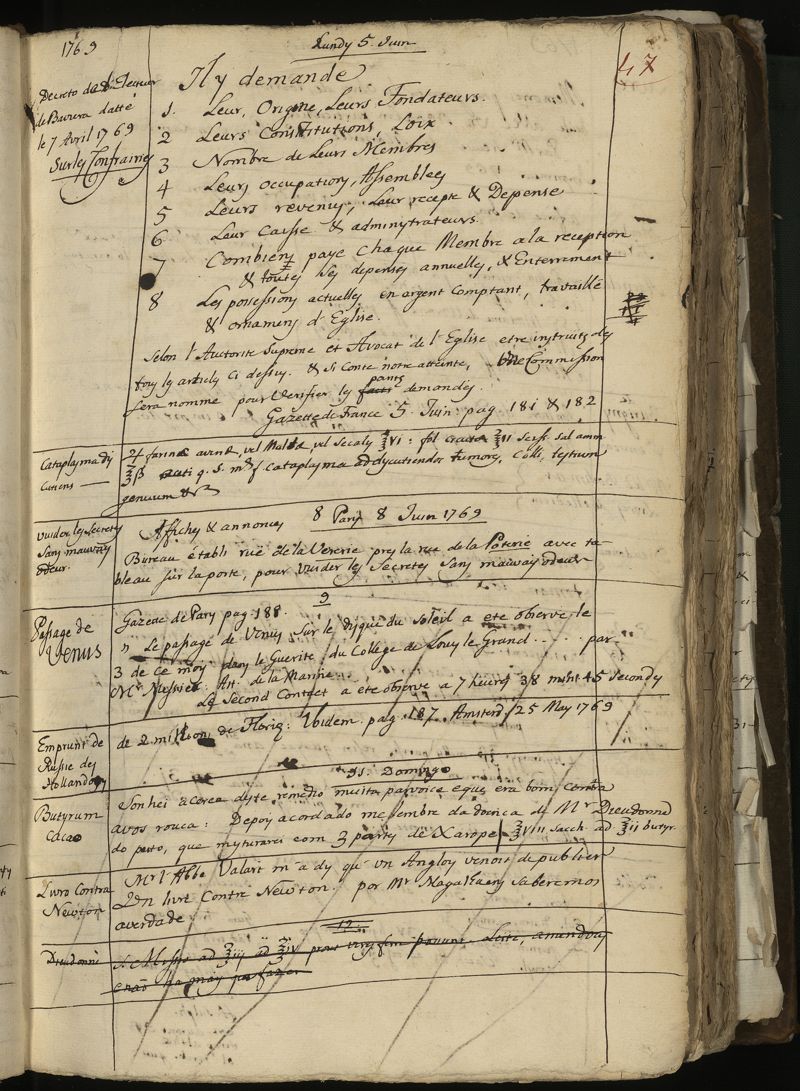 1769
Lundy 5. Juin
47
Decreto de l'Electeur
de Bavera datté
le 7 Avril 1769
Sur les Confrairies
Il y demande
1. Leur, Origine, Leurs Fondateurs.
2 Leurs Constitutions, Loix.
3 Nombre de Leurs Membres
4 Leurs occupations, Assemblees
5 Leurs revenus, Leur recepte & Depense
6 Leur Caisse & administrateurs.
7 Combiens paye Chaque Membre a la reception
& toutes les depenses annuelles, & Enterrement
8 Les possessions actuelles en argent Comptant, travaillé
& ornamens d'Eglise.
Selon l'Auctorite Supreme et Avocat de l'Eglise etre instruits des
tous les articles Ci dessus. & Si Conte notre atteinte, Une Commission
Sera nomme pour Verifier les parties demandes.
Gazette de France 5. Juin pag. 181 & 182
Cataplasma dis
cutiens
farinæ avenæ, vel Maltæ, vel Secalis ℥vi: fol cicutæ ℥ii Seiss. sal amm
℥ß aceti q. S. mds f cataplasma ad discutiendos tumores, Colli, testium
genuum &
vuider les Secretes
Sans mauvais
odeur.
Affiches & annonces 8 Paris 8 Juin 1769
Bureau établi rue de la Vererie pres la rue de la Poterie avec ta-
bleau Sur la porte, pour vuider les Secretes Sans mauvais odeur
Passage de
Venus
Gazette de Paris pag. 188. 9
" Le passage de Venus Sur le disque du Soleil a ete observe le
3 de ce mois dans le Guerite du College de Louis le Grand ..... par
Mr. Messier: Ast. de la Marine
Le Second Contact a ete observe a 7 heures 38 minut 45 Secondes
Emprunt de
Russie des
Hollandois
de 2 millions de Florins: Ibidem. pag. 187. Amsterd. 25 May 1769
11. Domingo
Butyrum
Cacao
Sonhei acerca deste remedio muita parvoice e que era bom Contra
avos rouca: Depois acordado me lembre da doença de Mr Dieudonné
do peito, que misturarei com 3 partes de Xarope ℥viii Sacch. ad ℥ii butyr.
Livro Contra
Newton
Mr. l'Abbé Valart m'a dy qu'un Anglois venoit de publier
Un livre Contre Newton. por Mr Magalhaens Saberemos
averdade
12
Dieudonné
ad ℥iij ad ℥iv Leite, amendoas
e nao ha mais que fazer